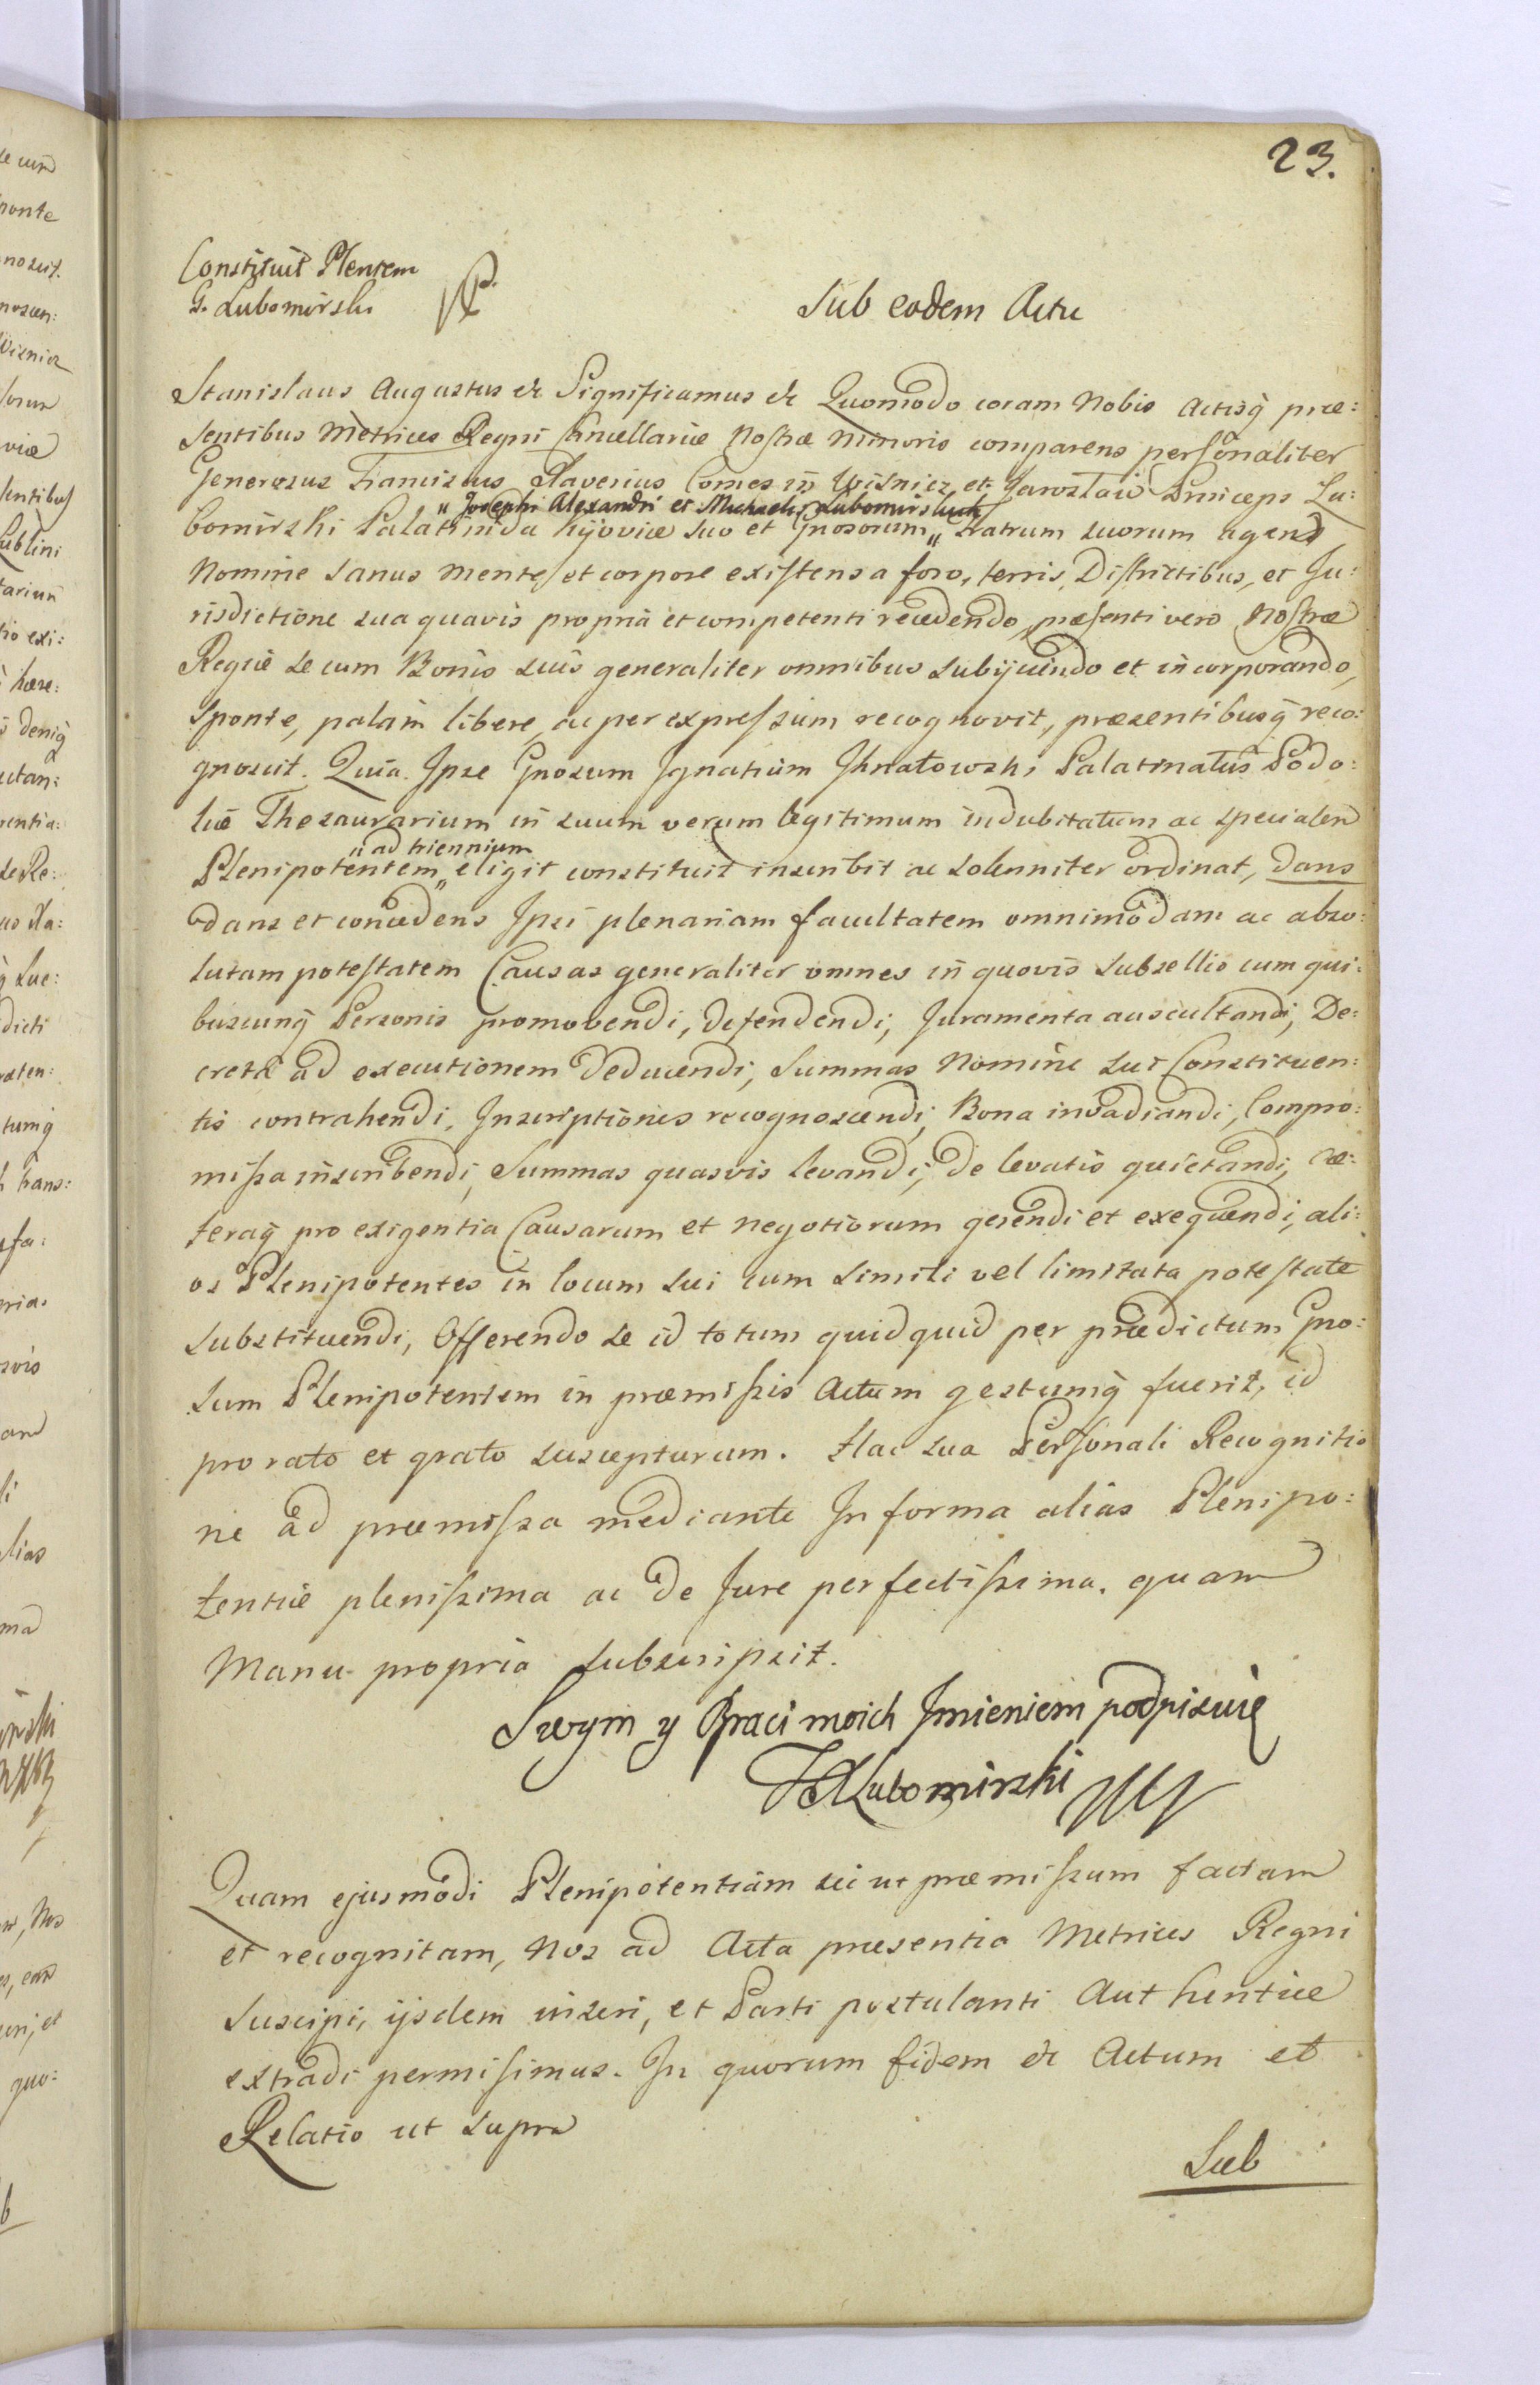 23.
Constituit Plentem
G. Lubomirski
Sub eodem Actu
Stanislaus Augustus etc Significamus etc Quomodo coram Nobis Actisq̃ præ:
sentibus Metrices Regni Cancellariæ Nostræ Minoris comparens personaliter
Generosus Franciscus Xaverius Comes in Wisnicz et Jaroslaw Princeps Lu:
"Josephi Alexandri et Michaelis Lubomirskich
bomirski Palatinida Kijoviæ suo et Gnosorum" Fratrum suorum agens
Nomine sanus mente et corpore existens a foro, terris, Districtibus, et Ju:
risdictione sua quavis propria et competenti recedendo, præsenti vero Nostræ
Regiæ se cum Bonis suis generaliter omnibus subijciendo et incorporando,
sponte, palam libere, ac per expressum recognovit, præsentibusq̃ reco:
gnoscit. Quia Ipse Gnosum Ignatium Ihnatowski Palatinatus Podo:
liæ Thesaurarium in suum verum legitimum indubitatum ac specialem
"ad triennium
Plenipotentem" eligit constituit inscribit ac solenniter ordinat, dans
dans et concedens Ipsi plenariam facultatem omnimodam ac abso:
lutam potestatem Causas generaliter omnes in quovis subsellio cum qui:
buscunq̃ Personis promovendi, defendendi, Juramenta auscultandi, De:
creta ad executionem deducendi, Summas Nomine sui Constituen:
tis contrahendi, Inscriptiones recognoscendi, Bona invadiandi, Compro:
missa inscribendi, Summas quasvis levandi, de levatis quietandi, cæ:
teraq̃ pro exigentia Causarum et negotiorum gerendi et exequendi, ali:
os Plenipotentes in locum sui cum simili vel limitata potestate
substituendi, Offerendo se id totum quidquid per prædictum Gno:
sum Plenipotentem in præmissis Actum gestumq̃ fuerit, id
pro rato et grato suscepturum. Hac sua Personali Recognitio
ne ad præmissa mediante In forma alias Plenipo:
tentiæ plenissima ac de Jure perfectissima. quam
Manu propria subscripsit.
Swym y Braci moich Jmieniem podpisuię
FX Lubomirski
Quam ejusmodi Plenipotentiam sic ut præmissum factam
et recognitam, Nos ad Acta præsentia Metrices Regni
suscipi, ijsdem inseri, et Parti postulanti Authentice
extradi permisimus. In quorum fidem etc Actum et
Relatio ut supra
Sub